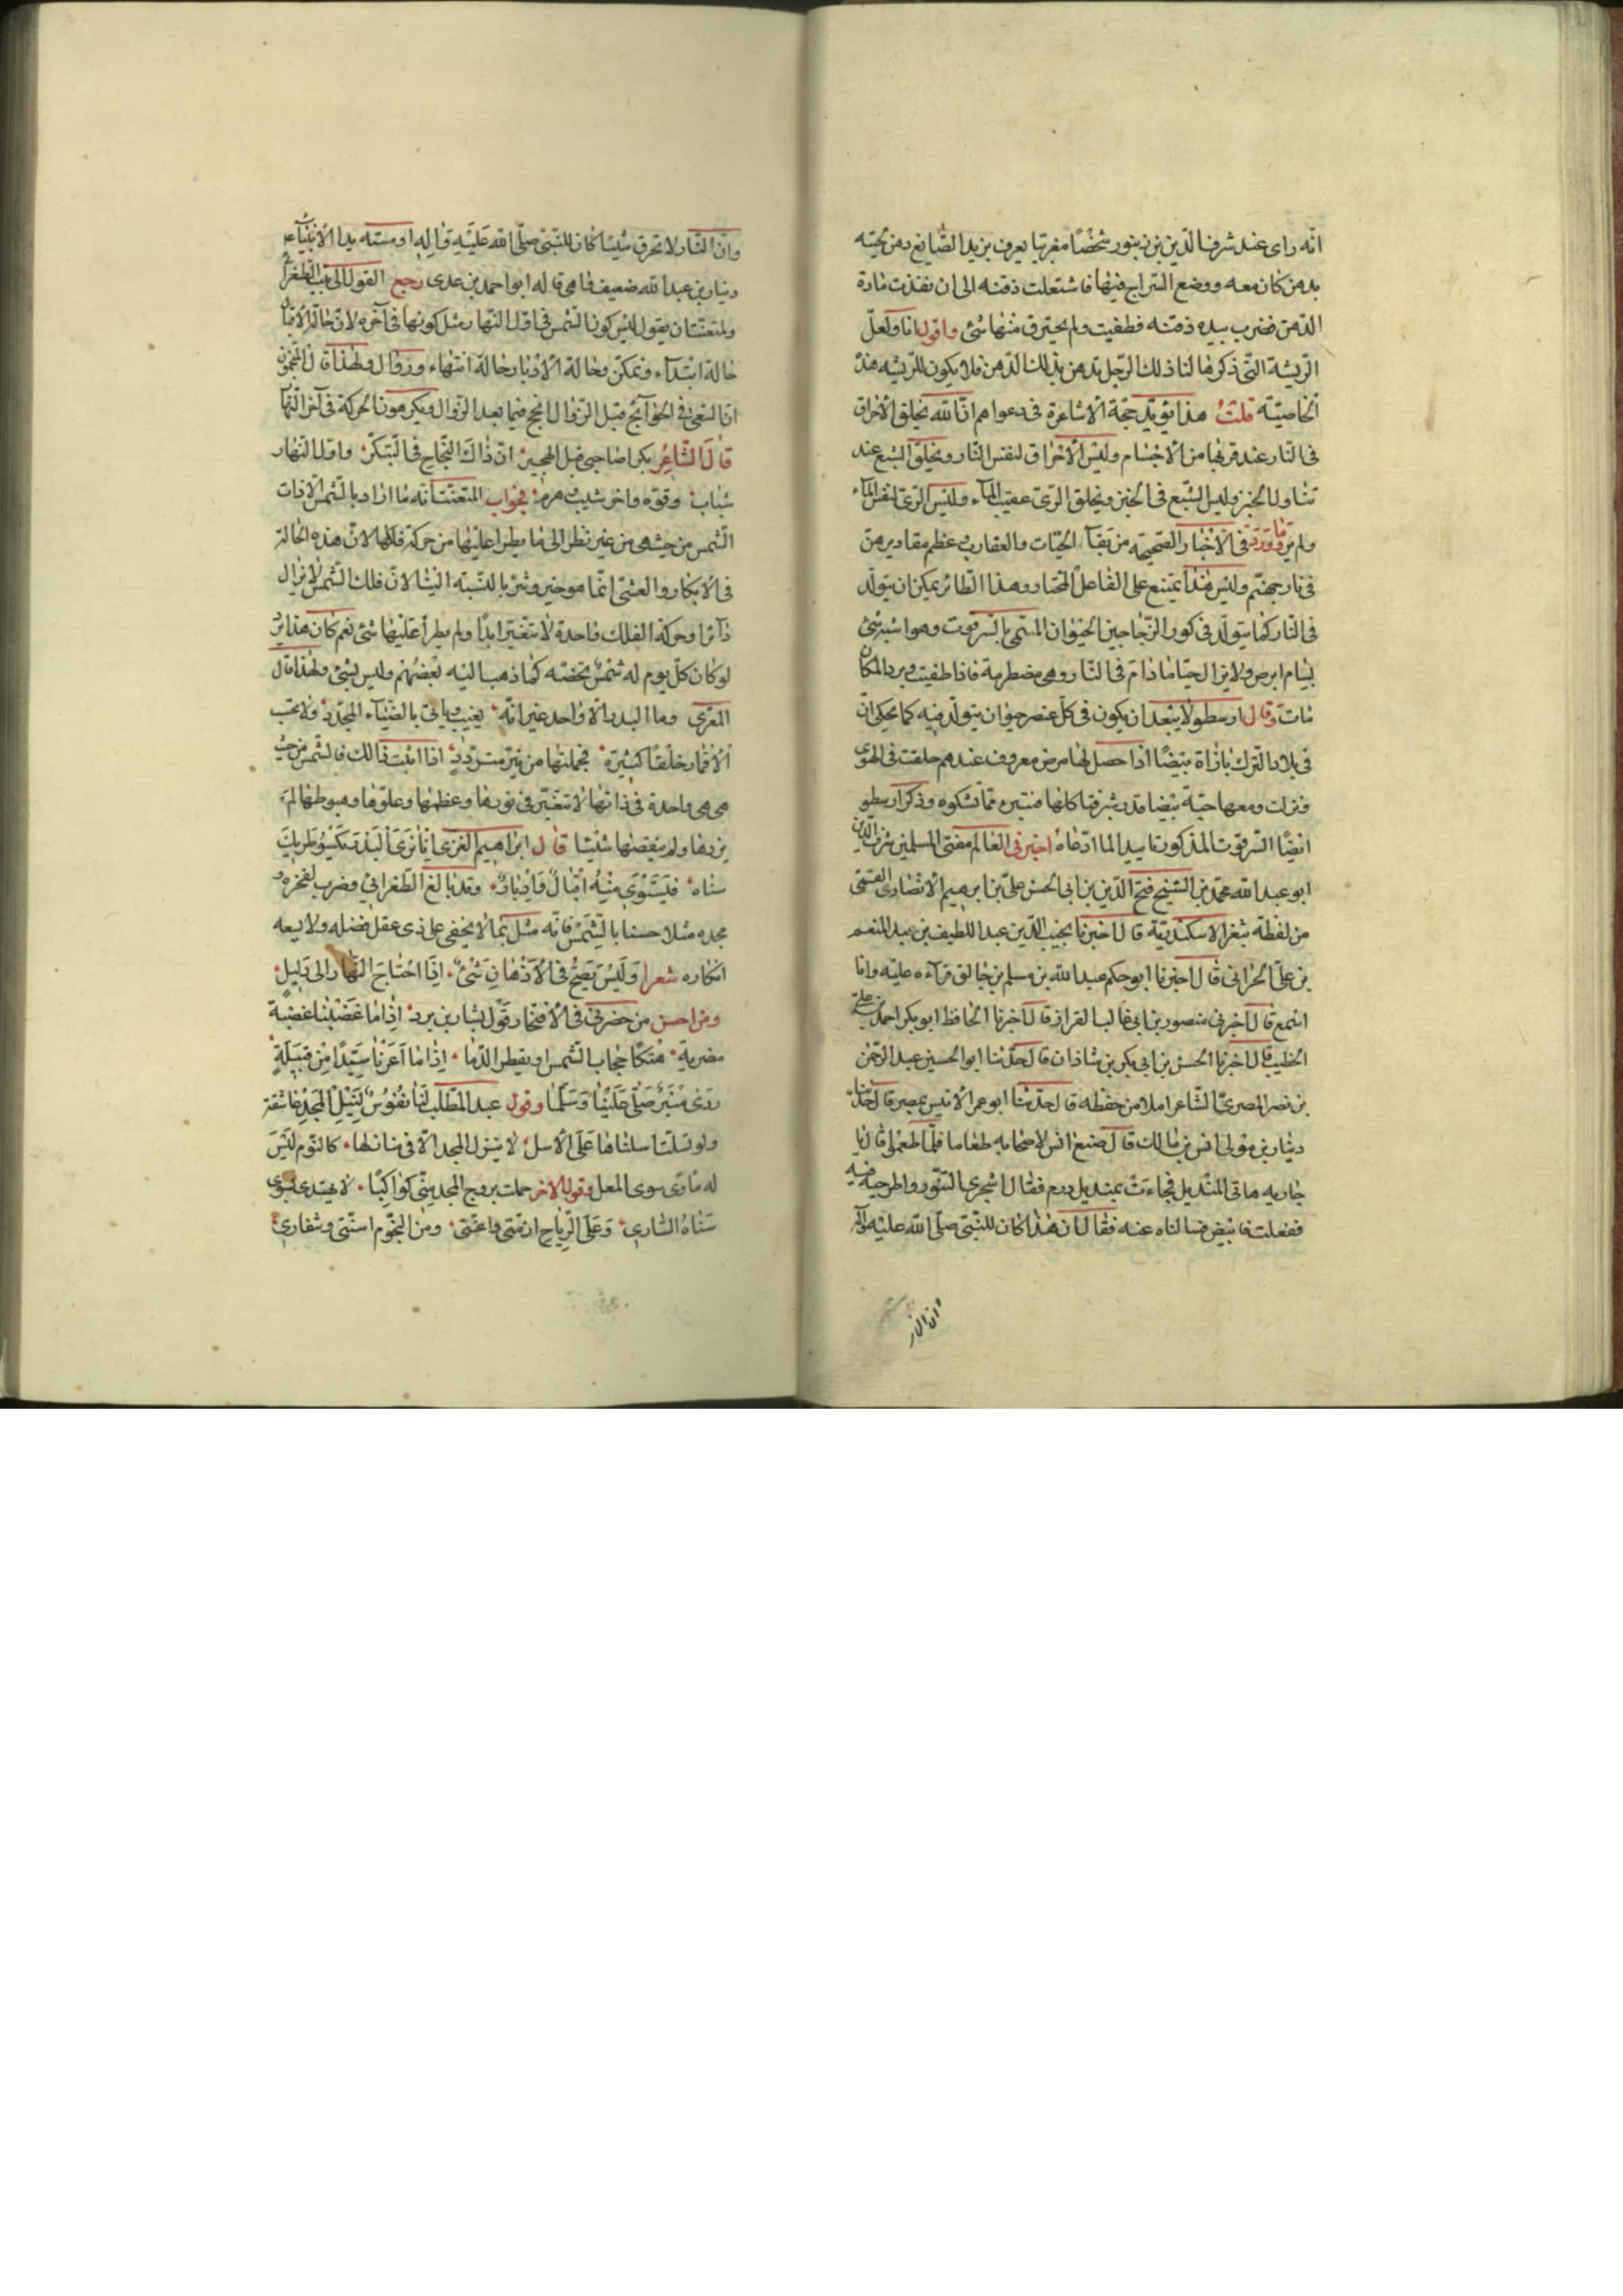 انّه رای عند شرف الدّین بن زنبور شخصًا مغربیّا یعرف بزید الصّایغ دهن لحیته
بدهن کان معه ووضع السّراج فیها فاشتعلت ذقنه الی ان نفذت مادة
الدّهن فضرب بیده ذقنه فطفیت ولم یحترق منها شئ واقول انا ولعلّ
الرّیشة التّی ذکرها لنا ذلك الرّجل تدهن بذلك الدّهن فلا یکون للرّیشه هذه
الخاصیّته قلتُ هذا یؤیّد حجّة الاشاعرة فی دعواهم انّ الله یخلق الاحراق
فی النّار عند قربها من الأجسام ولیس الأحراق لنفس النّار ویخلق الشبع عند
تناول الخبز ولیس الشّبع فی الخبز ویخلق الرّیّ عقیب المآء ولیس الرّیّ لنفس المآء
ولم یرد ما ورد فی الأخبار الصّحیحه من بقآء الحیّات والعقارب وعظم مقادیرهنّ
فی نار جهنّم ولیس هذا یمتنع علی الفاعل المختار وهذا الطّائر یمکن ان یتولّد
فی النّار کما یتولّد فی کور الزّجاجین الحیوان المسّمی بالسّرفوت وهو اشبه شئ
بسام ابرص ولا یزال حیّا ما دام فی النّار وهی مضطرمة فاذا طفیت وبرد المکان
مات وقال ارسطو لا یبعد ان یکون فی کلّ عنصر حیوان یتولّد فیه کما یحکی انّ
فی بلاد الترك بازاة بیضًا اذا حصل لها مرض معروف عندهم حلقت فی الهوی
فنزلت ومعها حیّة بیضا قدر شبر فتاکلها فتبیره ممّا تشکوه وذکر ارسطو
ایضًا السّرفوت المذکور تاییدا لما ادّعاه اخبرنی العالم مفتی المسلمین شرف الدّین
ابو عبد الله محمّد بن الشیخ فتح الدّین بن ابی الحسن علیّ بن ابرهیم الأنصاری القمنی
من لفظه بثغر الاسکندریّة قال اخبرنا نجیب الدّین عبد اللطیف بن عبد المنعم
بن علیّ الحرّانی قال اخبرنا ابو حکم عبد الله بن مسلم بن جالق قرآءه علیه وانا
اسمع قال اخبرنی منصور بن ابی غالب القزاز قال اخبرنا الحافظ ابو بکر احمد بن علی
الخطیب قال اخبرنا الحسن بن ابی بکر بن شاذان قال حدّثنا ابو الحسین عبد الرّحمن
بن نصر المصریّ الشّاعر املا من حفظه قال حدّثنا ابو عمر الأنیس بمصر قال حدّثنا
دینار بن مولی انس بن مالك قال صنع انس لاصحابه طعاما فلمّا طعموا قال یا
جاریه هاتی المندیل فجاءت بمندیل درم فقال اشجری التنّور واطرحیه فیه
ففعلت فابیضّ فسالناه عنه فقال ان هذا کان للنّبیّ صلّی الله علیه وآله
وان النار
وانّ النّار لا تحرق شیئا کان للنّبیّ صلّی الله علیه وآله او مسّته ید الأنبیاء
دینار بن عبد الله ضعیف فاهی قاله ابو احمد بن عدی رجع القول الی بیت الطغرائی
ولمتعنّت ان یقول لیس کون الشّمس فی اوّل النّهار مثل کونها فی آخره لانّ حالة الأقبال
حالة ابتدآء وتمکّن وحالة الأدبار حالة انتهاء وزوال ولهذا قال المنجّمون
انّ السّعی فی الحوآئج قبل الزّوال انجح فیما بعد الزّوال ویکرهون الحرکة فی آخر النّهار
قال الشّاعر بکرا صاحبی قبل الهجیر انّ ذاك النّجاح فی التّبکیر واوّل النّهار
شباب وقوّه واخر شیب وهرم فجواب المتعنّت انّه ما اراد بالشّمس الّا ذات
الشّمس من حیث هی من غیر نظر الی ما یطرا علیها من حرکة فلکها لانّ هذه الحالة
فی الأبکار والعشیّ انّما هو خیر وشرّ بالنّسبة الینا لانّ فلك الشّمس لا یزال
دآئرا وحرکة الفلك واحدة لا تتغیّر ابدًا ولم یطرأ علیها شئ نعم کان هذا یرد
لو کان کلّ یوم له شمسٌ تخصّه کما ذهب الیه بعضهم ولیس بشئ ولهذا قال
المعرّی وما البدر الّا واحد غیر انّه یغیب ویاتی بالضّیآء المجدّد ولا تحسب
الأقمار خلقًا کثیرة فجملتها من نیّر متردّدٍ اذا اثبت ذالك فالشّمس من حیث
هی هی واحدة فی ذاتها لا تتغیّر فی نورها وعظمها وعلوّها وهبوطها لم
یزدها ولم ینقصها شیئا قال ابراهیم الغزی انّا نری البدر یکسو طریك
سناه فیستوی منه اقبالٌ وادبارٌ وقد بالغ الطّغرائی وضرب لفخره و
مجده مثلا حسنا بالشّمس فانّه مثل بما لا یخفی علی ذی عقل فضله ولا یسعه
انکاره شعرا ولیس یصحّ فی الأذهان شئٌ اذا احتاج النهار الی دلیلٍ
ومن احسن من حضرنی فی الأفتخار قول بشار بن برد اذا ما غضبنا غضبة
مضریة هتکنا حجاب الشّمس او یقطر الدّما اذا ما اعرنا سیّدًا من قبیلةٍ
ذری منبر صلّی علینا وسلّما وقول عبد المطّلب لنا نفوسٌ لنیل المجد عاشقة
ولو تسلّت اسلناها علی الأسل لا ینزل المجد الّا فی منازلها کالنّوم لیس
له ماوی سوی المقل وقول الاخر حملت بروج المجد منّی کواکبًا لا یهتدی بسوی
سناه السّاری وعلی الرّیاح ازمّتی واعنّتی ومن النّجوم اسنّتی وشفاری